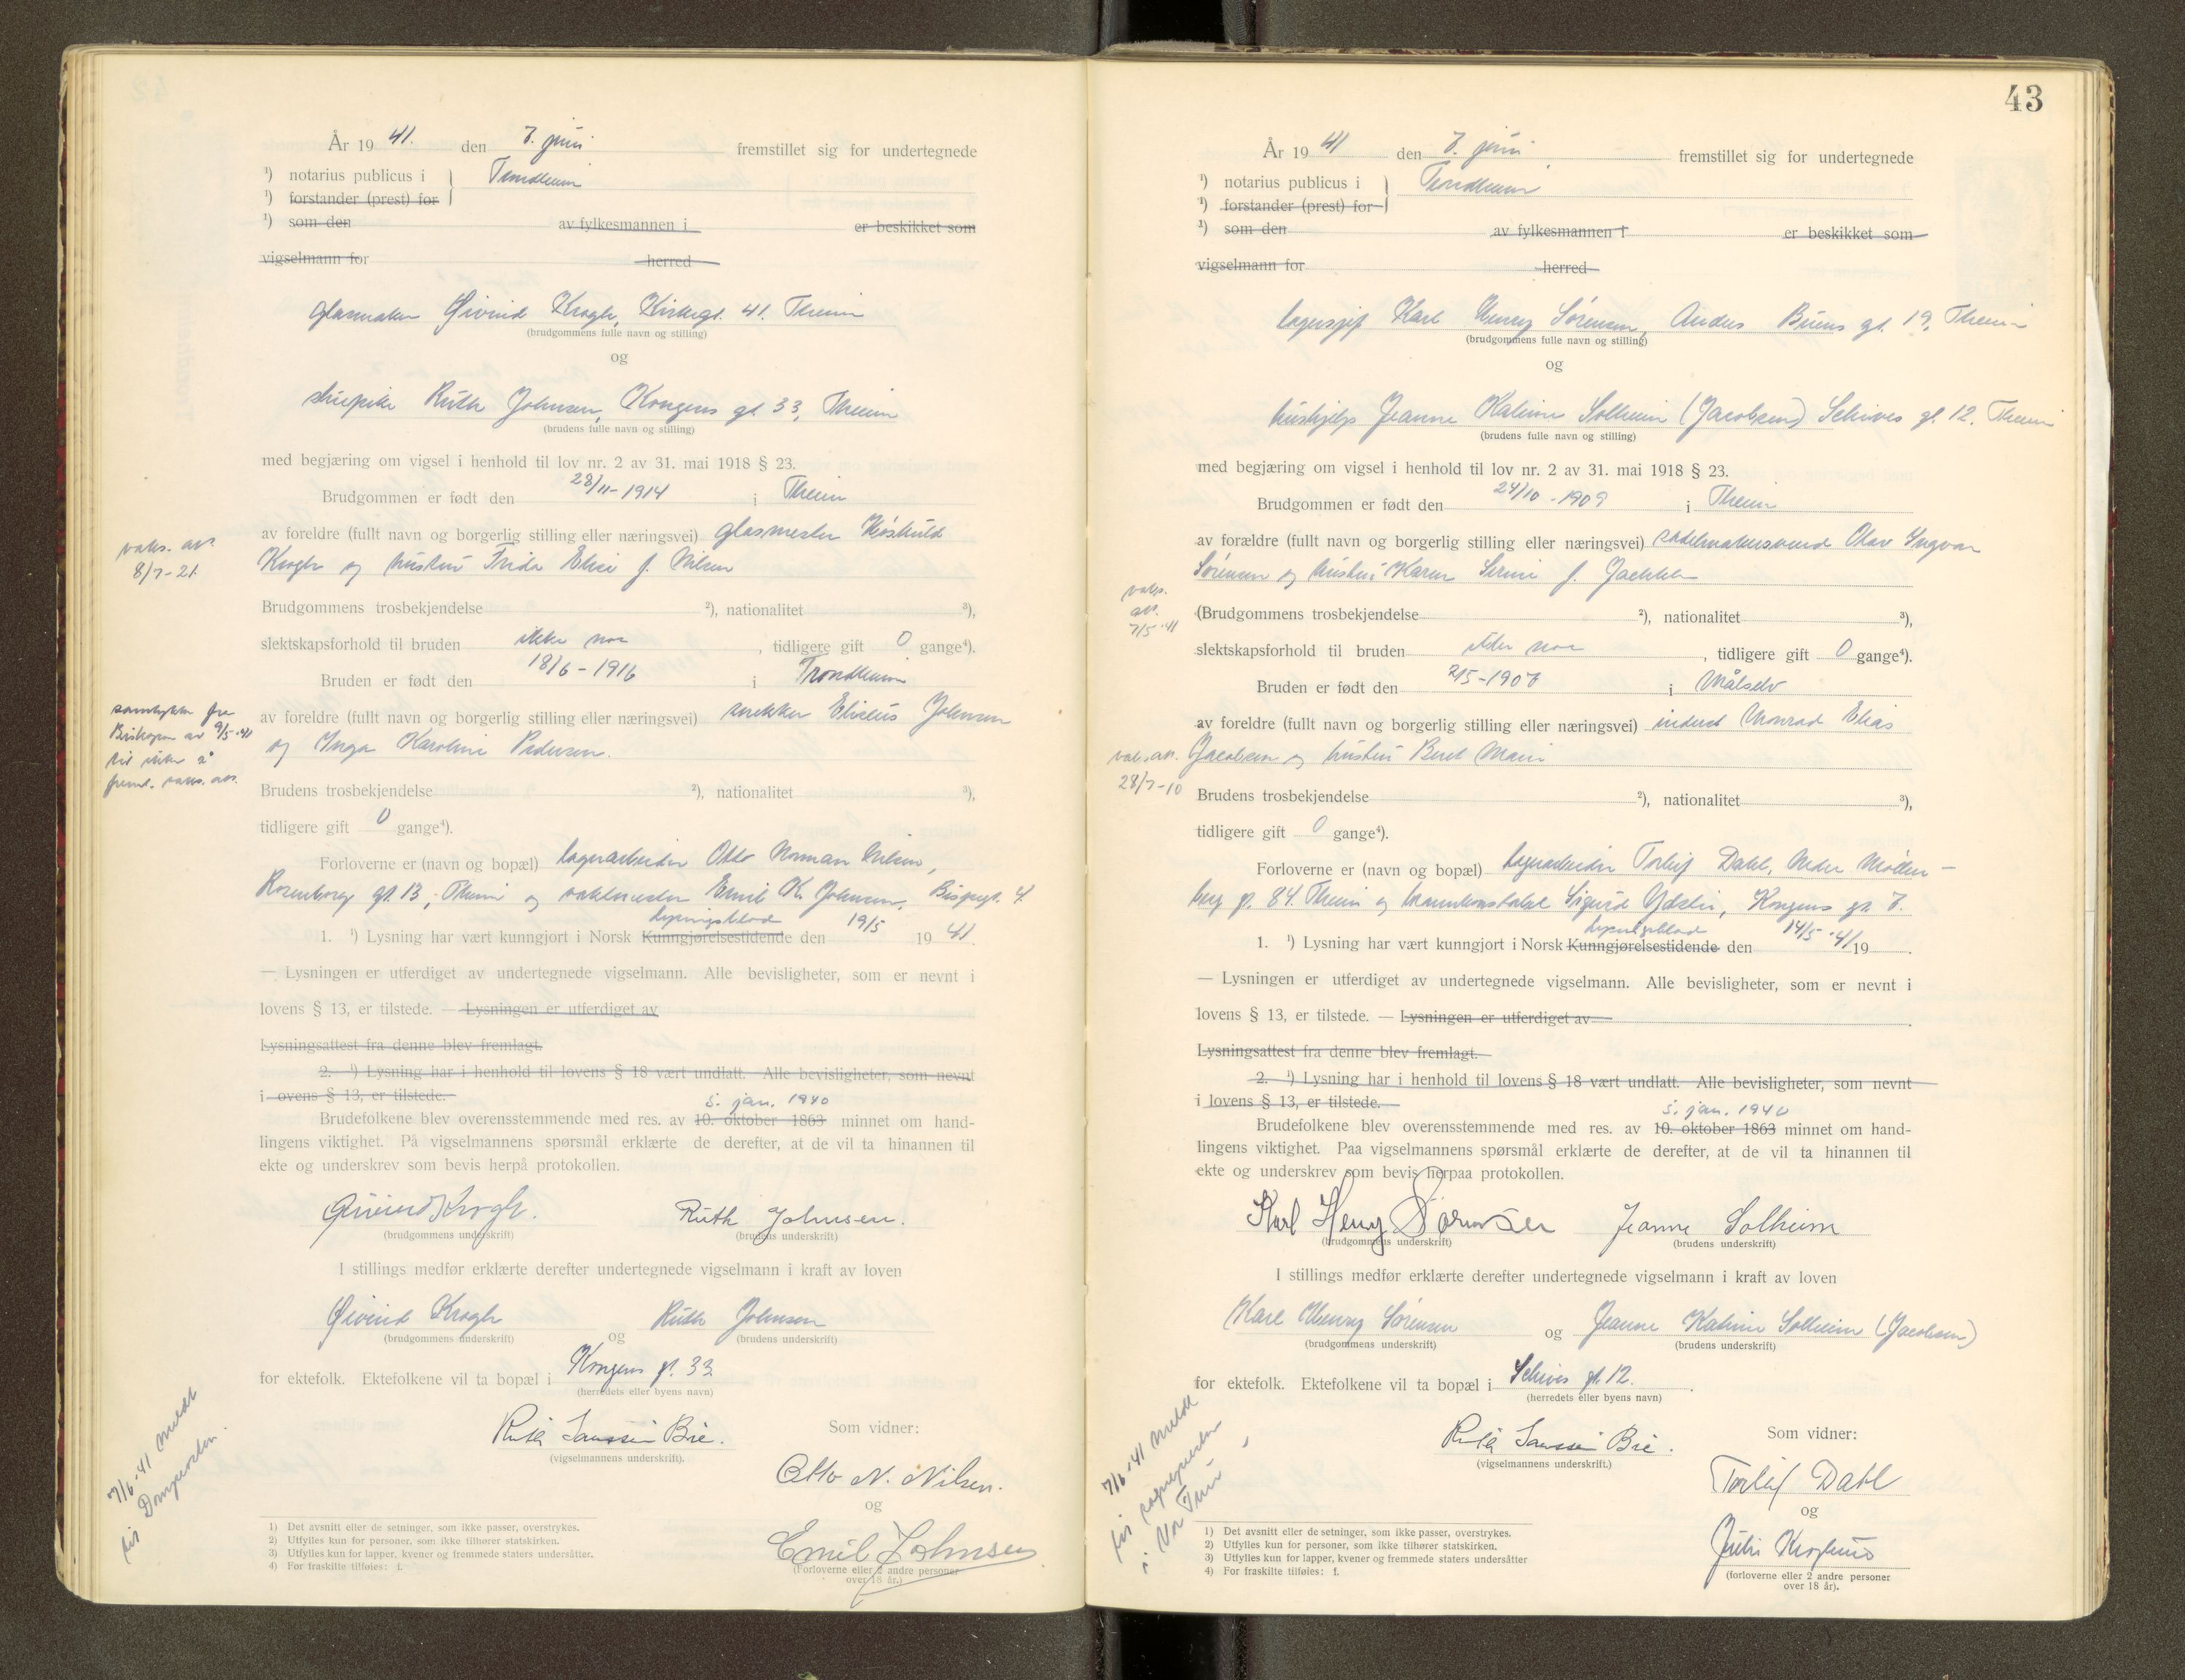 År 19 41. den 7. juni fremstillet sig for undertegnede
¹) notarius publicus i Trondheim
¹) forstander (prest) for
¹) som den av fylkesmannen i er beskikket som
vigselmann for herred
glasmaker Øivind Krogh, Kirkegt. 41. Theim
(brudgommens fulle navn og stilling)
og
stuepike Ruth Johnsen, Kongens gt 33, Theim
(brudens fulle navn og stilling)
med begjæring om vigsel i henhold til lov nr. 2 av 31. mai 1918 § 23.
Brudgommen er født den 28/11-1914 i Theim
av foreldre (fullt navn og borgerlig stilling eller næringsvei) glasmester Høskuld
Krogh og hustru Frida Elise f. Nilsen
vaks. att.
8/7-21.
Brudgommens trosbekjendelse ²), nationalitet ³),
slektskapsforhold til bruden ikke noe, tidligere gift 0 gange⁴).
Bruden er født den 18/6-1916 i Trondheim
av foreldre (fullt navn og borgerlig stilling eller næringsvei) snekker Eliseus Johnsen
og Inga Karoline Pedersen.
samtykke fra
Biskopen av 9/5-41
til ikke å
freml. vaks. att.
Brudens trosbekjendelse ²), nationalitet ³),
tidligere gift 0 gange⁴).
Forloverne er (navn og bopæl) lagerarbeider Otto Norman Nilsen,
Rosenborg gt. 13, Theim og vaktmester Emil K. Johnsen, Bispegt. 4.
lysningsblad
1. ¹) Lysning har vært kunngjort i Norsk Kunngjørelsestidende den 19/5 19 41.
— Lysningen er utferdiget av undertegnede vigselmann. Alle bevisligheter, som er nevnt i
lovens § 13, er tilstede. — Lysningen er utferdiget av
Lysningsattest fra denne blev fremlagt.
2. ¹) Lysning har i henhold til lovens § 18 vært undlatt. Alle bevisligheter, som nevnt
i ovens § 13, er tilstede.
5. jan. 1940
Brudefolkene blev overensstemmende med res. av 10. oktober 1863 minnet om hand-
lingens viktighet. På vigselmannens spørsmål erklærte de derefter, at de vil ta hinannen til
ekte og underskrev som bevis herpå protokollen.
Øivind Krogh. Ruth Johnsen.
(brudgommens underskrift) (brudens underskrift)
I stillings medfør erklærte derefter undertegnede vigselmann i kraft av loven
Øivind Krogh og Ruth Johnsen
(brudgommens underskrift) (brudens underskrift)
for ektefolk. Ektefolkene vil ta bopæl i Kongens gt. 33
(herredets eller byens navn)
Som vidner:
(vigselmannens underskrift).
Otto N. Nilsen.
og
Emil Johnsen
(Forloverne eller 2 andre personer
over 18 år.)
7/6-41 meldt
til Domprosten.
1) Det avsnitt eller de setninger, som ikke passer, overstrykes.
2) Utfylles kun for personer, som ikke tilhører statskirken.
3) Utfylles kun for lapper, kvener og fremmede staters undersåtter.
4) For fraskilte tilføies: f.
43
År 19 41 den 7. juni fremstillet sig for undertegnede
¹) notarius publicus i Trondheim
¹) forstander (prest) for
¹) som den av fylkesmannen i er beskikket som
vigselmann for herred
lagersjef Karl Henry Sørensen, Anders Buens gt. 19, Theim
(brudgommens fulle navn og stilling)
og
hushjelp Jeanne Katrine Solheim (Jacobsen) Schives gt. 12. Theim
(brudens fulle navn og stilling)
med begjæring om vigsel i henhold til lov nr. 2 av 31. mai 1918 § 23.
Brudgommen er født den 24/10-1909 i Theim
av forældre (fullt navn og borgerlig stilling eller næringsvei) sadelmakersvend Olav Ingvar
Sørensen og hustru Karen f.
vaks.
att.
7/5-41
(Brudgommens trosbekjendelse ²), nationalitet ³),
slektskapsforhold til bruden noe, tidligere gift 0 gange⁴).
Bruden er født den 2/5-1907 i Målselv
av foreldre (fullt navn og borgerlig stilling eller næringsvei) inderst Monrad Elias
Jacobsen og hustru Beret Marie
vak. att.
28/7-10
Brudens trosbekjendelse ²), nationalitet ³),
tidligere gift 0 gange⁴).
Forloverne er (navn og bopæl) lagerarbeider Torleif Dahl, Nedre Møllen-
berg gt. 84. Theim og Sigurd Kongens gt. 7.
lysningsblad
1. ¹) Lysning har vært kunngjort i Norsk Kunngjørelsestidende den 14/5-41 19 .
— Lysningen er utferdiget av undertegnede vigselmann. Alle bevisligheter, som er nevnt i
lovens § 13, er tilstede. — Lysningen er utferdiget av
Lysningsattest fra denne blev fremlagt.
2. ¹) Lysning har i henhold til lovens § 18 vært undlatt. Alle bevisligheter, som nevnt
i lovens § 13, er tilstede.
5. jan. 1940
Brudefolkene blev overensstemmende med res. av 10. oktober 1863 minnet om hand-
lingens viktighet. Paa vigselmannens spørsmål erklærte de derefter, at de vil ta hinannen til
ekte og underskrev som bevis herpaa protokollen.
Karl Henry Sørensen Jeanne Solheim
(brudgommens underskrift) (brudens underskrift)
I stillings medfør erklærte derefter undertegnede vigselmann i kraft av loven
Karl Henry Sørensen og Jeanne Katrine Solheim (Jacobsen)
(brudgommens underskrift) (brudens underskrift)
for ektefolk. Ektefolkene vil ta bopæl i Schives gt. 12.
(herredets eller byens navn)
Som vidner:
(vigselmannens underskrift.)
Torleif Dahl
og
(forloverne eller 2 andre personer
over 18 år).
7/6-41 meldt
til sognepresten
i Vor Frue
1) Det avsnitt eller de setninger, som ikke passer, overstrykes.
2) Utfylles kun for personer, som ikke tilhører statskirken.
3) Utfylles kun for lapper, kvener og fremmede staters undersåtter
4) For fraskilte tilføies: f.